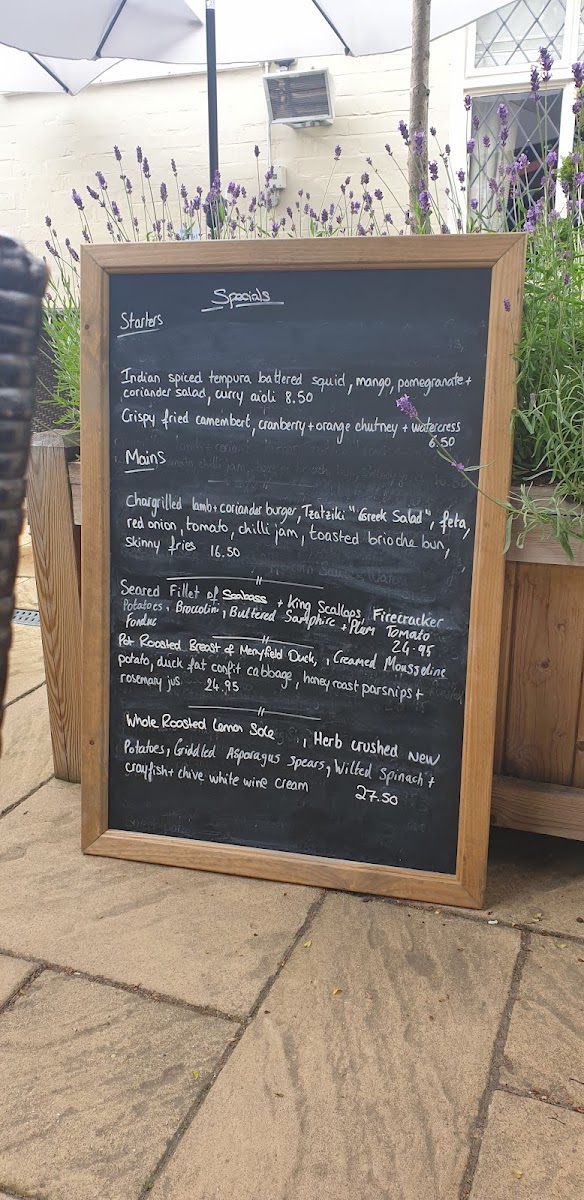 Specials
Starters
Indian spiced tempura battered squid, mango, pomegranate +
coriander salad, curry aioli 8.50
Crispy fried camembert, cranberry + orange chutney + watercress
6.50
Mains
Chargrilled lamb + coriander burger, Tzatziki "Greek Salad", feta,
red onion, tomato, chilli jam, toasted brioche bun,
skinny fries 16.50
Seared Fillet of Seabass + King Scallops, Firecracker
Potatoes, Broccolini, Buttered Samphire + Plum Tomato
Fondue 24.95
Pot Roasted Breast of Merryfield Duck, Creamed Mousseline
potato, duck fat confit cabbage, honey roast parsnips +
rosemary jus 24.95
Whole Roasted Lemon Sole, Herb crushed New
Potatoes, Griddled Asparagus Spears, Wilted Spinach +
crayfish + chive white wine cream 27.50